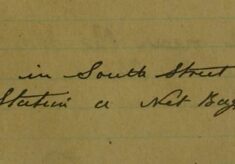 in South Street
Station a Net Bag